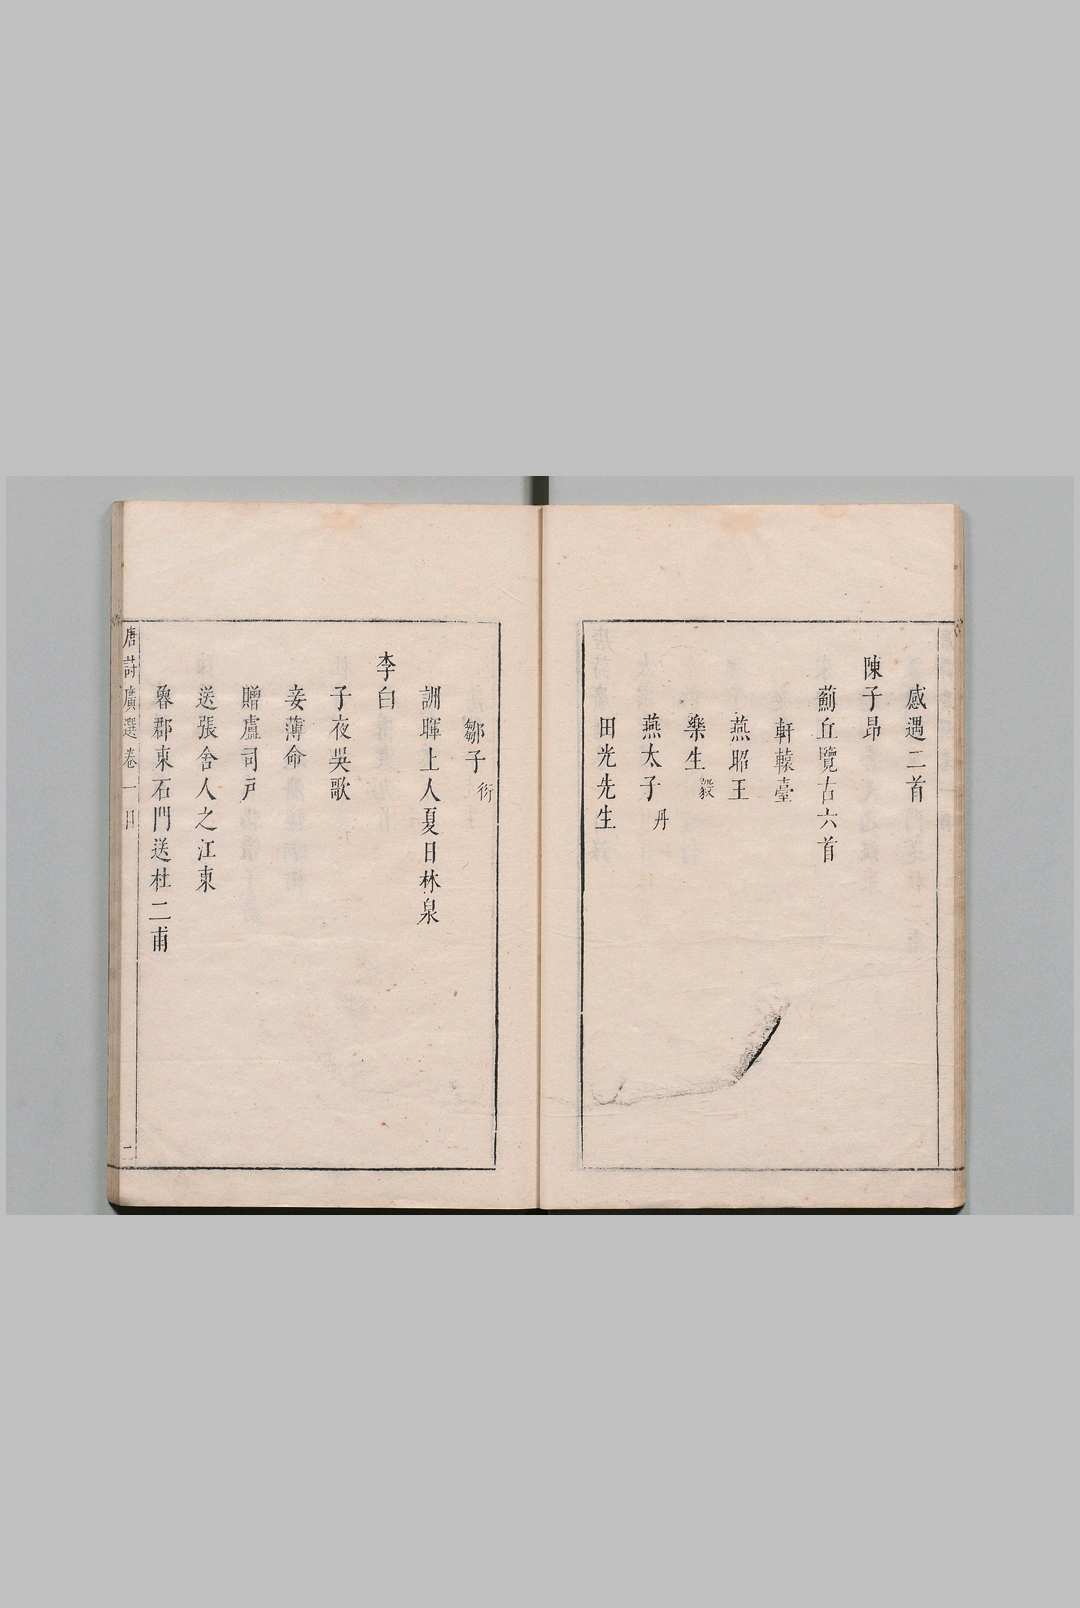 感遇二首
陳子昂
薊丘覽古六首
軒轅臺
燕昭王
樂生毅
燕太子丹
田光先生
鄒子衍
詶暉上人夏日林泉
李白
子夜吳歌
妾薄命
贈盧司戸
送張舍人之江東
魯郡東石門送杜二甫
唐詩廣選卷一目
二